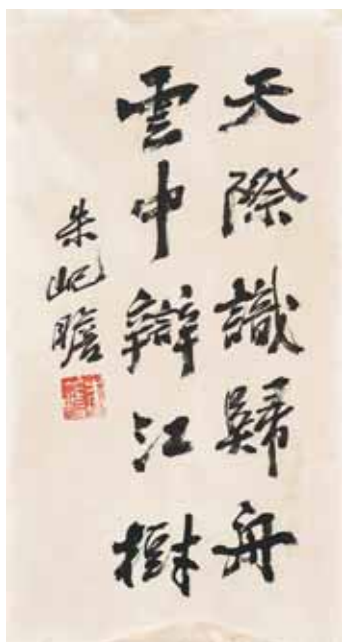 天際識歸舟
雲中辯江樹
朱屺瞻